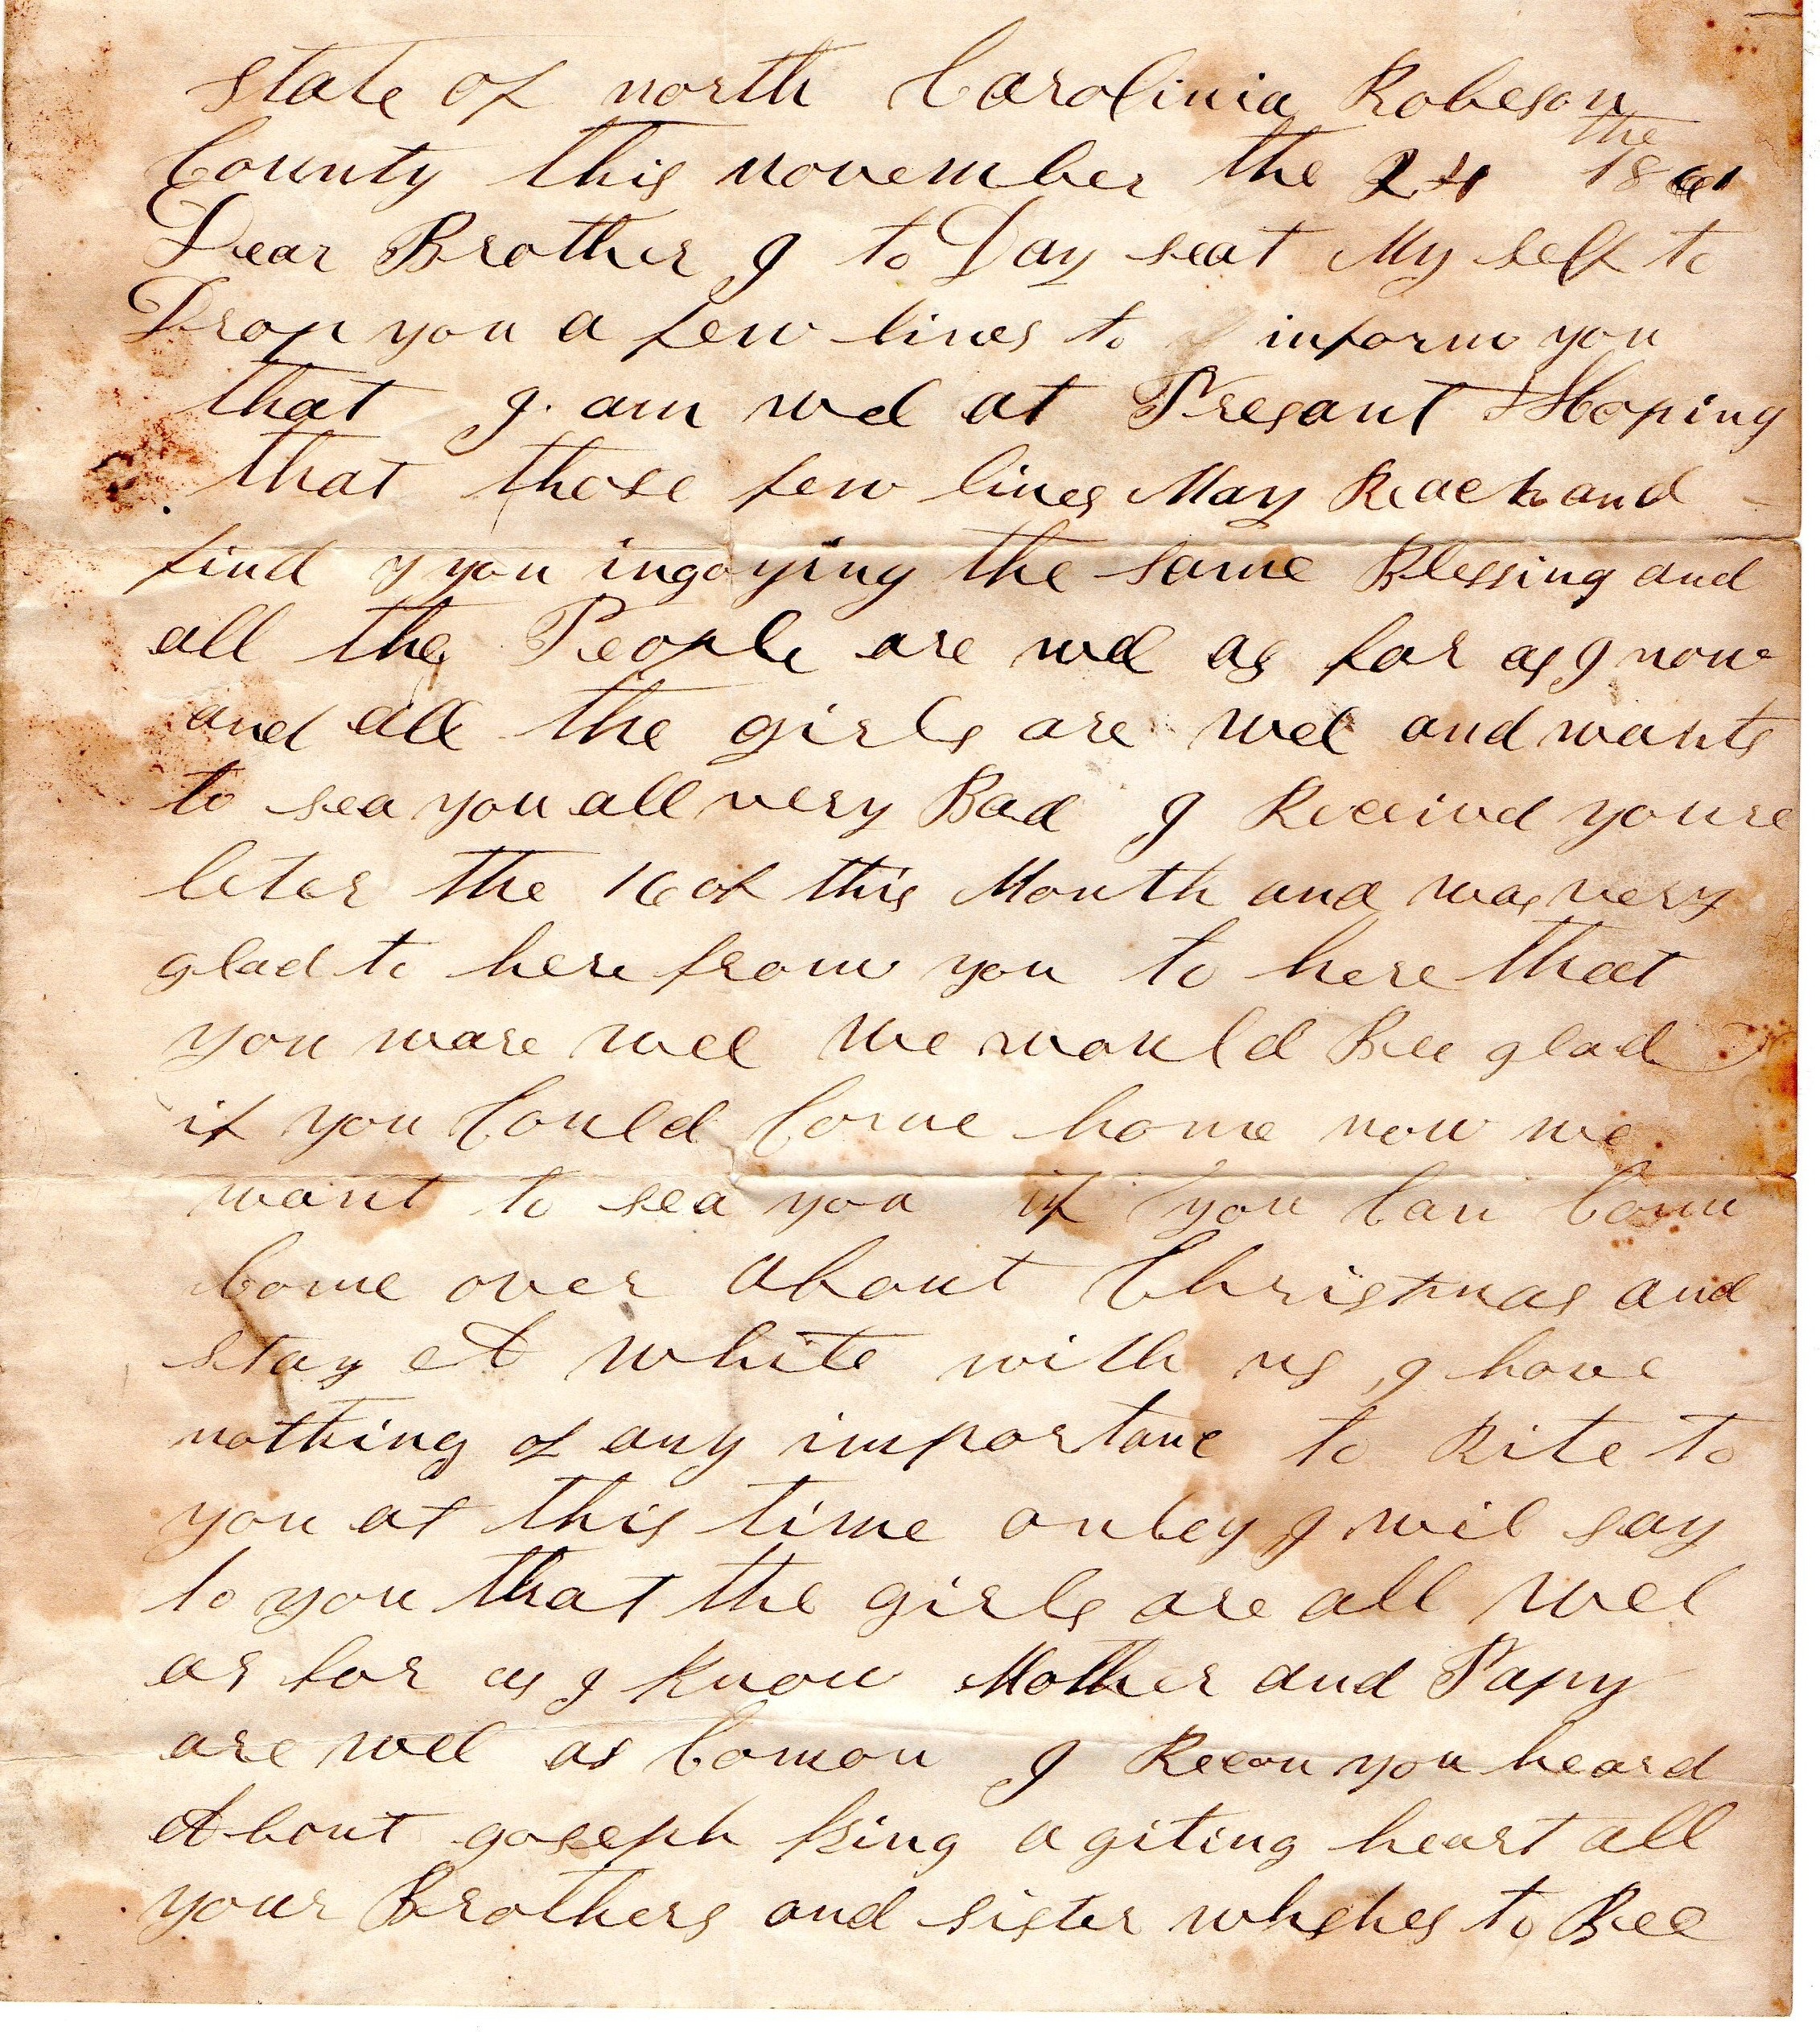 State of north Carolinia Robeson
County this november the 24 the 1861
Dear Brother I to Day seat My self to
Drop you a few lines to inform you
that I am wel at Presant & Hoping
that those few lines May Reach and
find y you ingoying the same Blessing and
all the People are wel as far as I now
and all the girls are wel and wants
to sea you all very Bad I Receivd youre
leter the 16 of this Month and was very
glad to here from you to here that
you ware wel we would Bee glad
if you Could Come home now we
want to sea you if you Can Com
Come over about Christmas and
stay A white with us I have
nothing of any importanc to Rite to
you at this time onley I wil say
to you that the girls are all wel
as far as I know Mother and Papy
are wel as Comon I Recon you heard
About goseph King a giting heart all
your Brothers and sister whishes to Bee